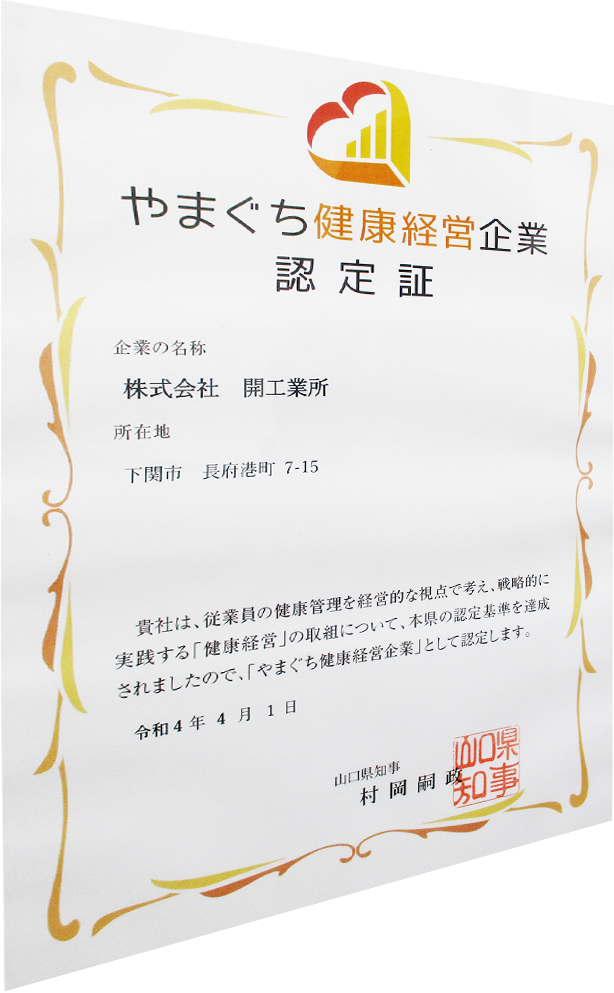 やまぐち健康経営企業
認定証
企業の名称
株式会社　開工業所
所在地
下関市　長府港町 7-15
貴社は、従業員の健康管理を経営的な視点で考え、戦略的に
実践する「健康経営」の取組について、本県の認定基準を達成
されましたので、「やまぐち健康経営企業」として認定します。
令和4年 4月 1日
山口県知事
村岡嗣政
山口県
知事